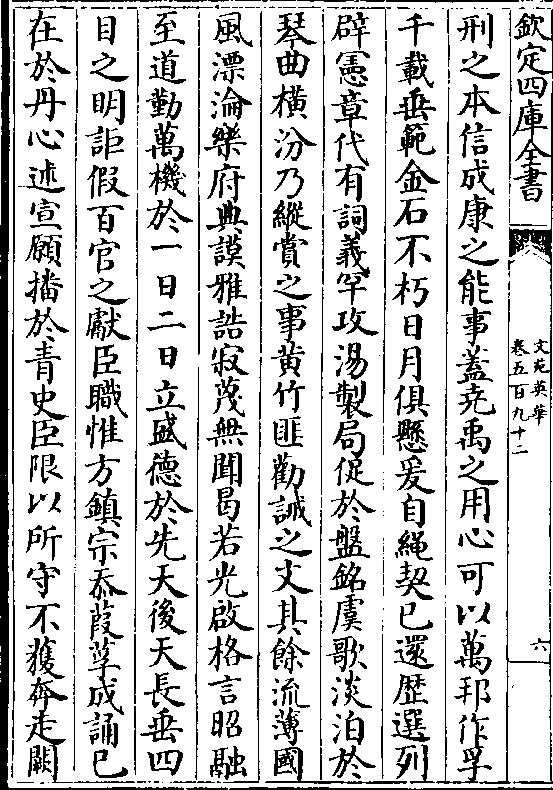 欽定四庫全書
文苑英華
卷五百九十二
六
刑之本信成康之能事蓋堯禹之用心可以萬邦作孚
千載垂範金石不朽日月俱懸爰自繩契已還歷選列
辟憲章代有詞義罕攻湯製局促於盤銘虞歌淡泊於
琴曲橫汾乃縱賞之事黄竹匪勸誡之文其餘流薄國
風漂淪樂府典謨雅誥寂蔑無聞曷若光啟格言昭融
至道勤萬機於一日二日立盛德於先天後天長垂四
目之明詎假百官之獻臣職惟方鎮宗忝葭莩成誦已
在於丹心述宣願播於青史臣限以所守不獲奔走闕